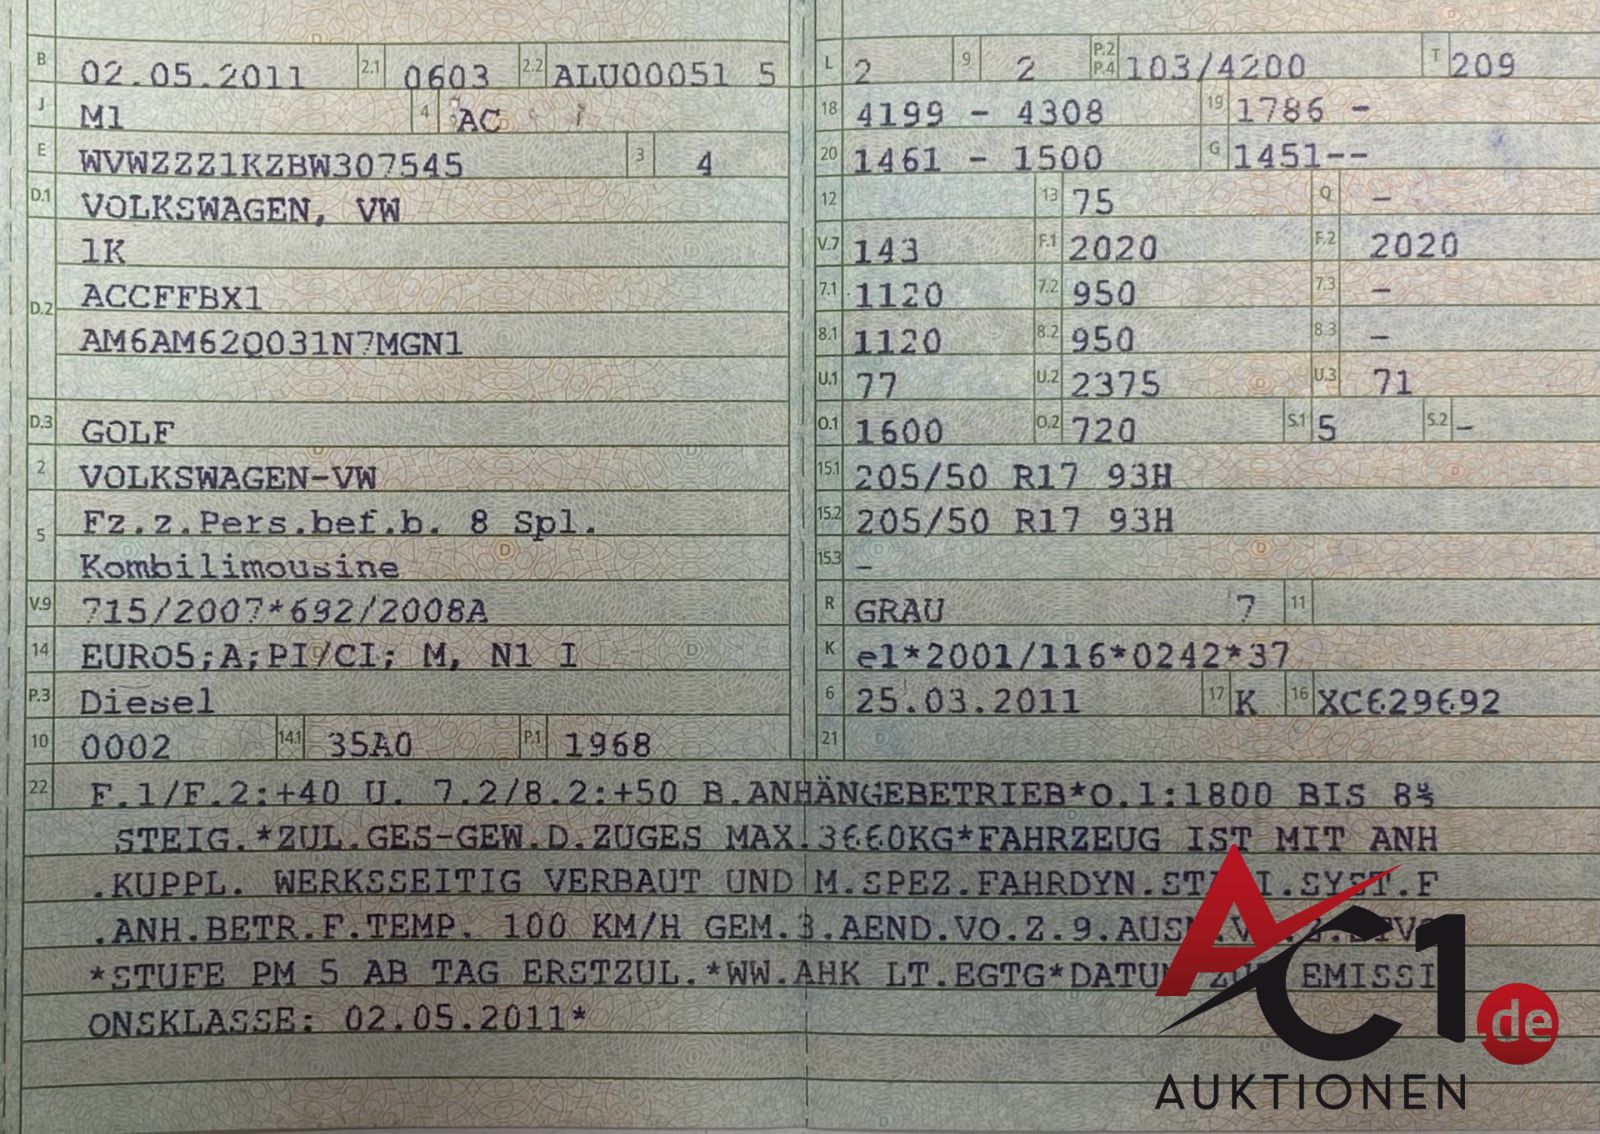 B 02.05.2011 2.1 0603 2.2 ALU00051 5
J M1 4 AC
E WVWZZZ1KZBW307545 3 4
D.1 VOLKSWAGEN, VW
1K
D.2 ACCFFBX1
AM6AM62Q031N7MGN1
D.3 GOLF
2 VOLKSWAGEN-VW
5 Fz.z.Pers.bef.b. 8 Spl.
Kombilimousine
V.9 715/2007*692/2008A
14 EURO5;A;PI/CI; M, N1 I
P.3 Diesel
10 0002 14.1 35A0 P.1 1968
L 2 9 2 P.2 P.4 103/4200 T 209
18 4199 - 4308 19 1786 -
20 1461 - 1500 G 1451--
12 13 75 Q -
V.7 143 F.1 2020 F.2 2020
7.1 1120 7.2 950 7.3 -
8.1 1120 8.2 950 8.3 -
U.1 77 U.2 2375 U.3 71
O.1 1600 O.2 720 S.1 5 S.2 -
15.1 205/50 R17 93H
15.2 205/50 R17 93H
15.3 -
R GRAU 7 11
K e1*2001/116*0242*37
6 25.03.2011 17 K 16 XC629692
21
22 F.1/F.2:+40 U. 7.2/8.2:+50 B.ANHÄNGEBETRIEB*O.1:1800 BIS 8%
STEIG.*ZUL.GES-GEW.D.ZUGES MAX.3660KG*FAHRZEUG IST MIT ANH
.KUPPL. WERKSSEITIG VERBAUT UND M.SPEZ.FAHRDYN.ST I.SYST.F
.ANH.BETR.F.TEMP. 100 KM/H GEM.3.AEND.VO.Z.9.AUSN.V
*STUFE PM 5 AB TAG ERSTZUL.*WW.AHK LT.EGTG*DATUM ZUR EMISSI
ONSKLASSE: 02.05.2011*
AC1.de
AUKTIONEN